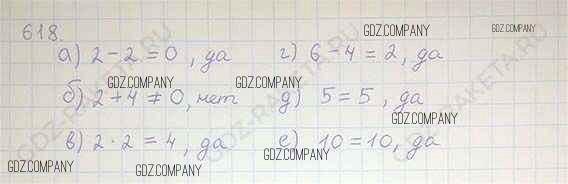 618.
GDZ.COMPANY
GDZ.COMPANY
а) 2 - 2 = 0, да г) 6 - 4 = 2, да
GDZ.COMPANY
GDZ.COMPANY
б) 2 + 4 ≠ 0, нет д) 5 = 5, да
GDZ.COMPANY
в) 2 · 2 = 4, да е) 10 = 10, да
GDZ.COMPANY
GDZ.COMPANY
GDZ.COMPANY
GDZ-RAKETA.RU
GDZ-RAKETA.RU